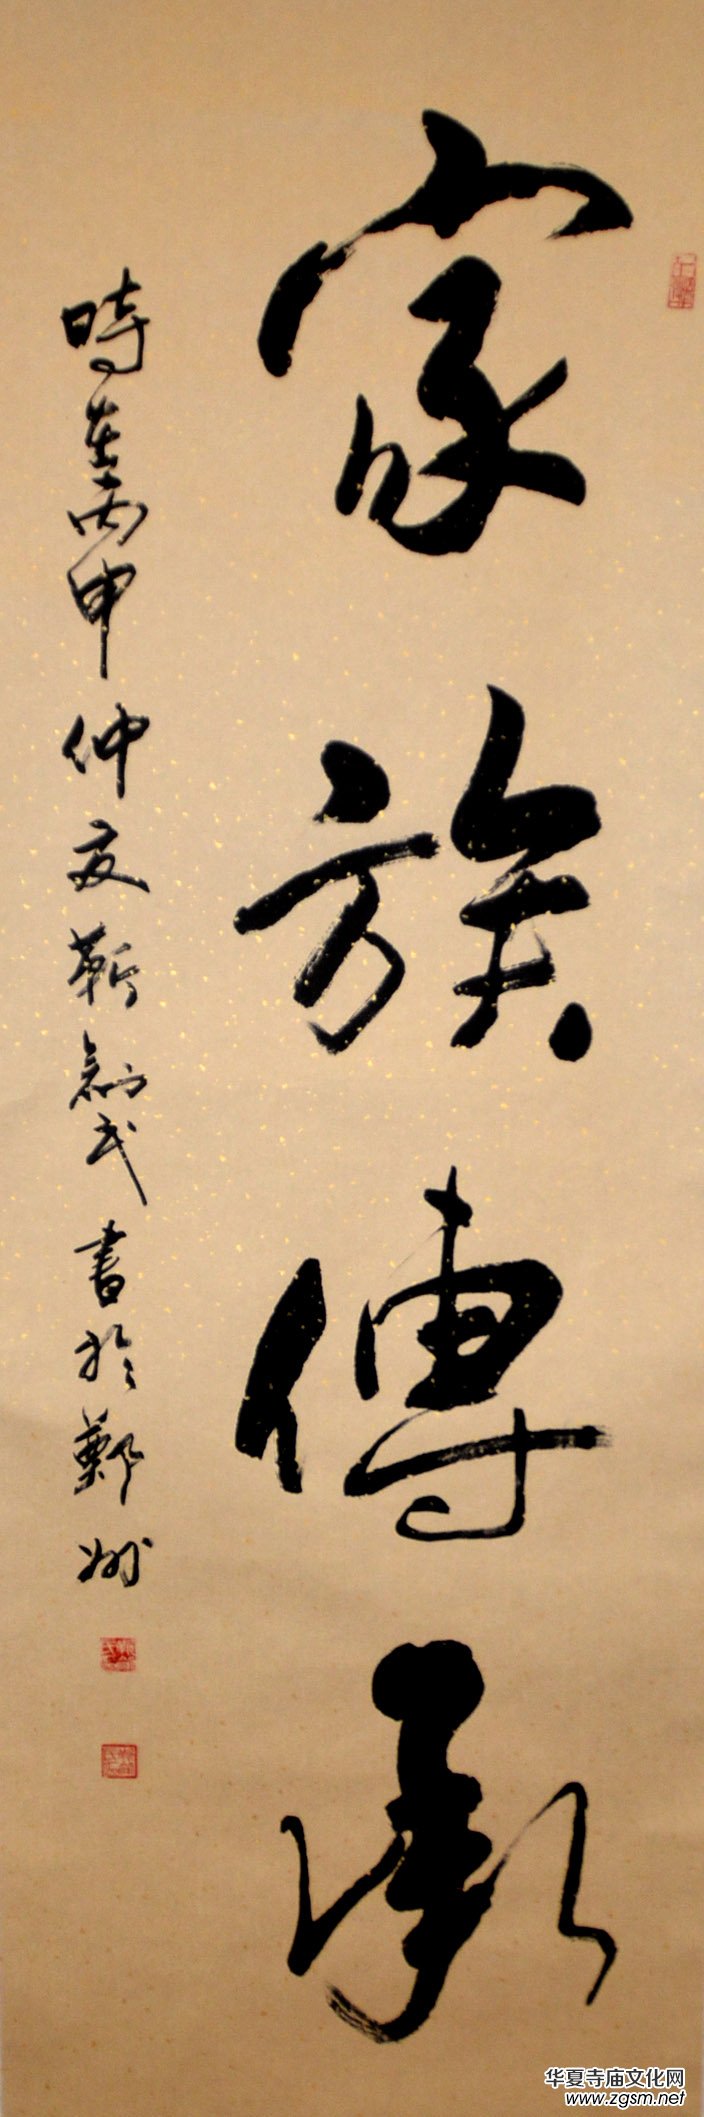 家族傳承
時在丙申仲夏靳劍武書於鄭州
华夏寺庙文化网
www.zgsm.net